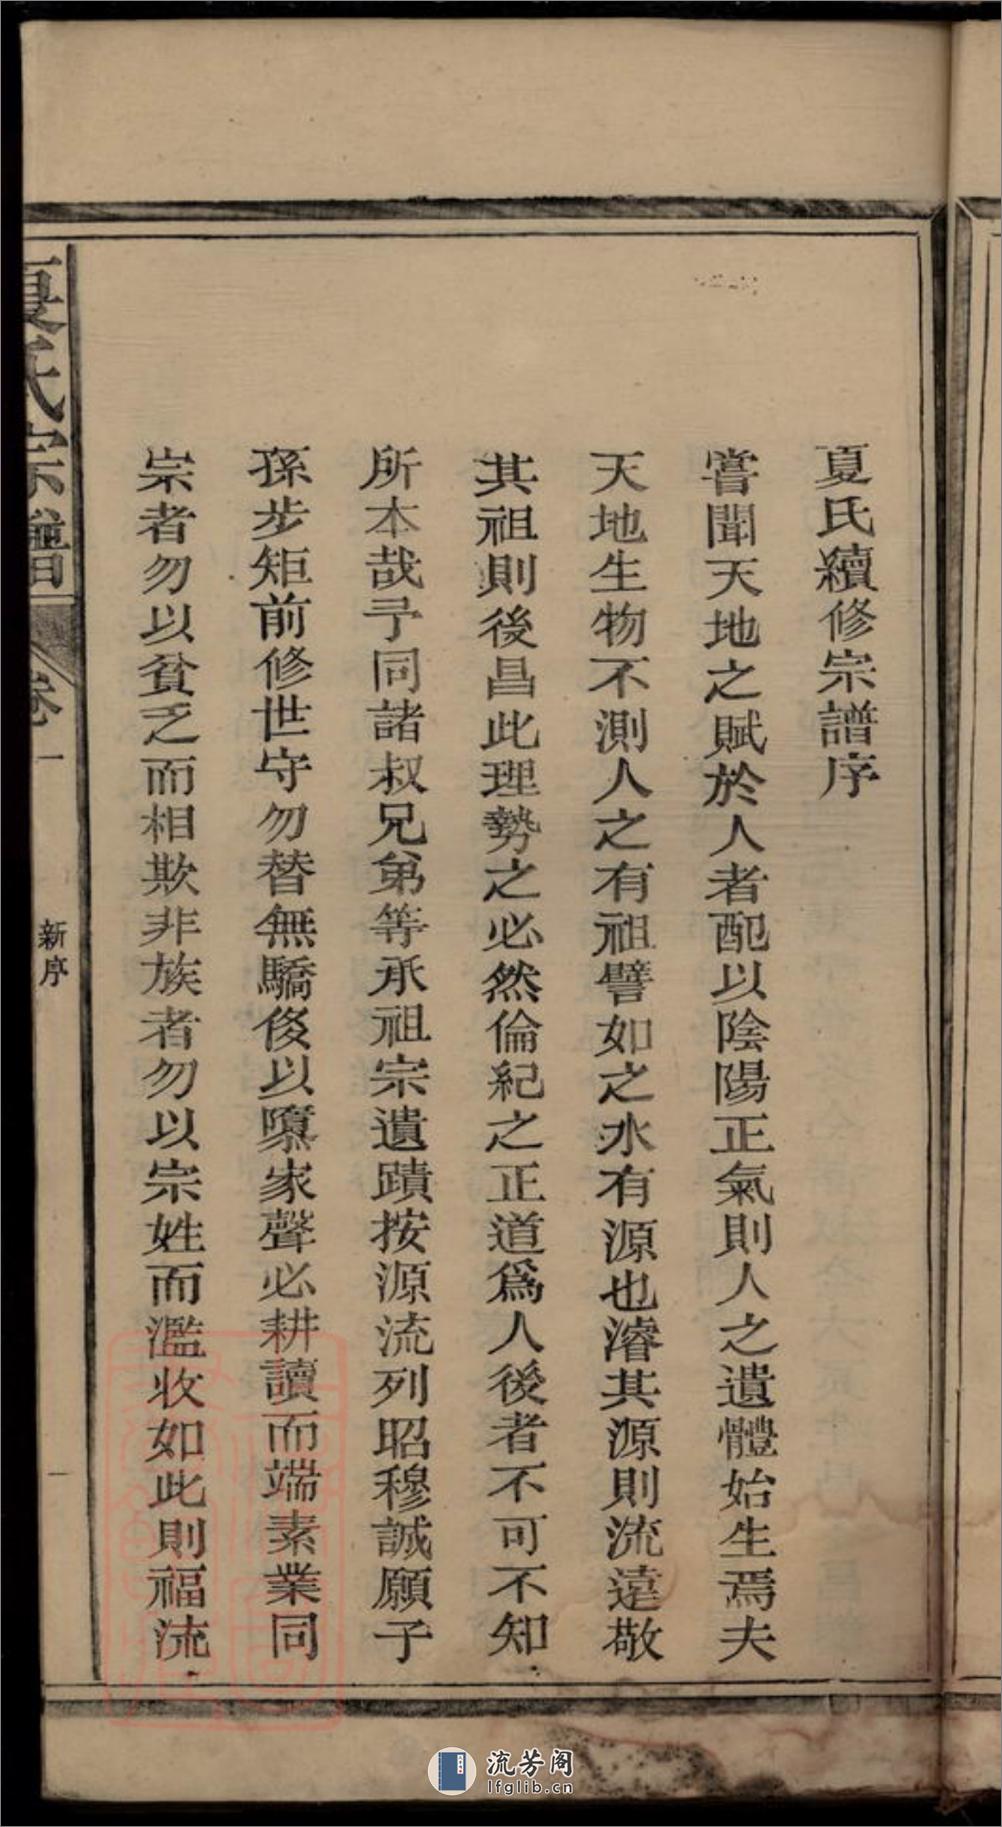 夏氏續修宗譜序
嘗聞天地之賦於人者配以陰陽正氣則人之遺體始生焉夫
天地生物不測人之有祖譬如之水有源也濬其源則流遠敬
其祖則後昌此理勢之必然倫紀之正道爲人後者不可不知
所本哉予同諸叔兄弟等承祖宗遺蹟按源流列昭穆誠願子
孫步矩前修世守勿替無驕侈以隳家聲必耕讀而端素業同
宗者勿以貧乏而相欺非族者勿以宗姓而濫收如此則福流
夏氏宗譜 卷一 新序 一
流芳阁
lfglib.cn